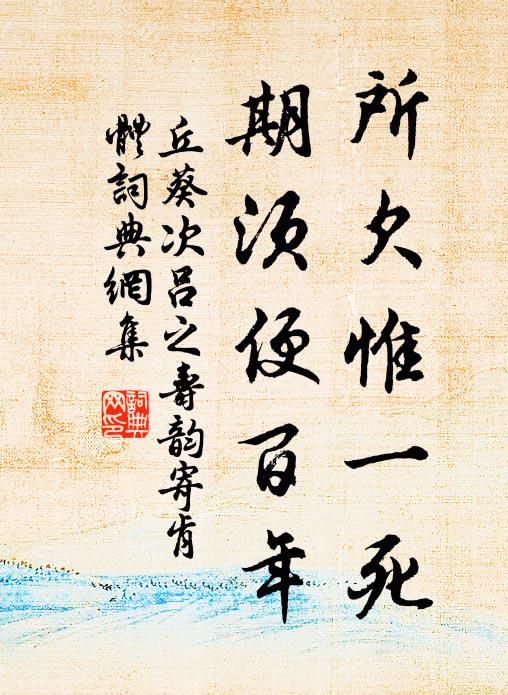 所欠惟一死
期須便百年
丘葵次呂之壽韵寄肯
軆詞典網集
詞典网印